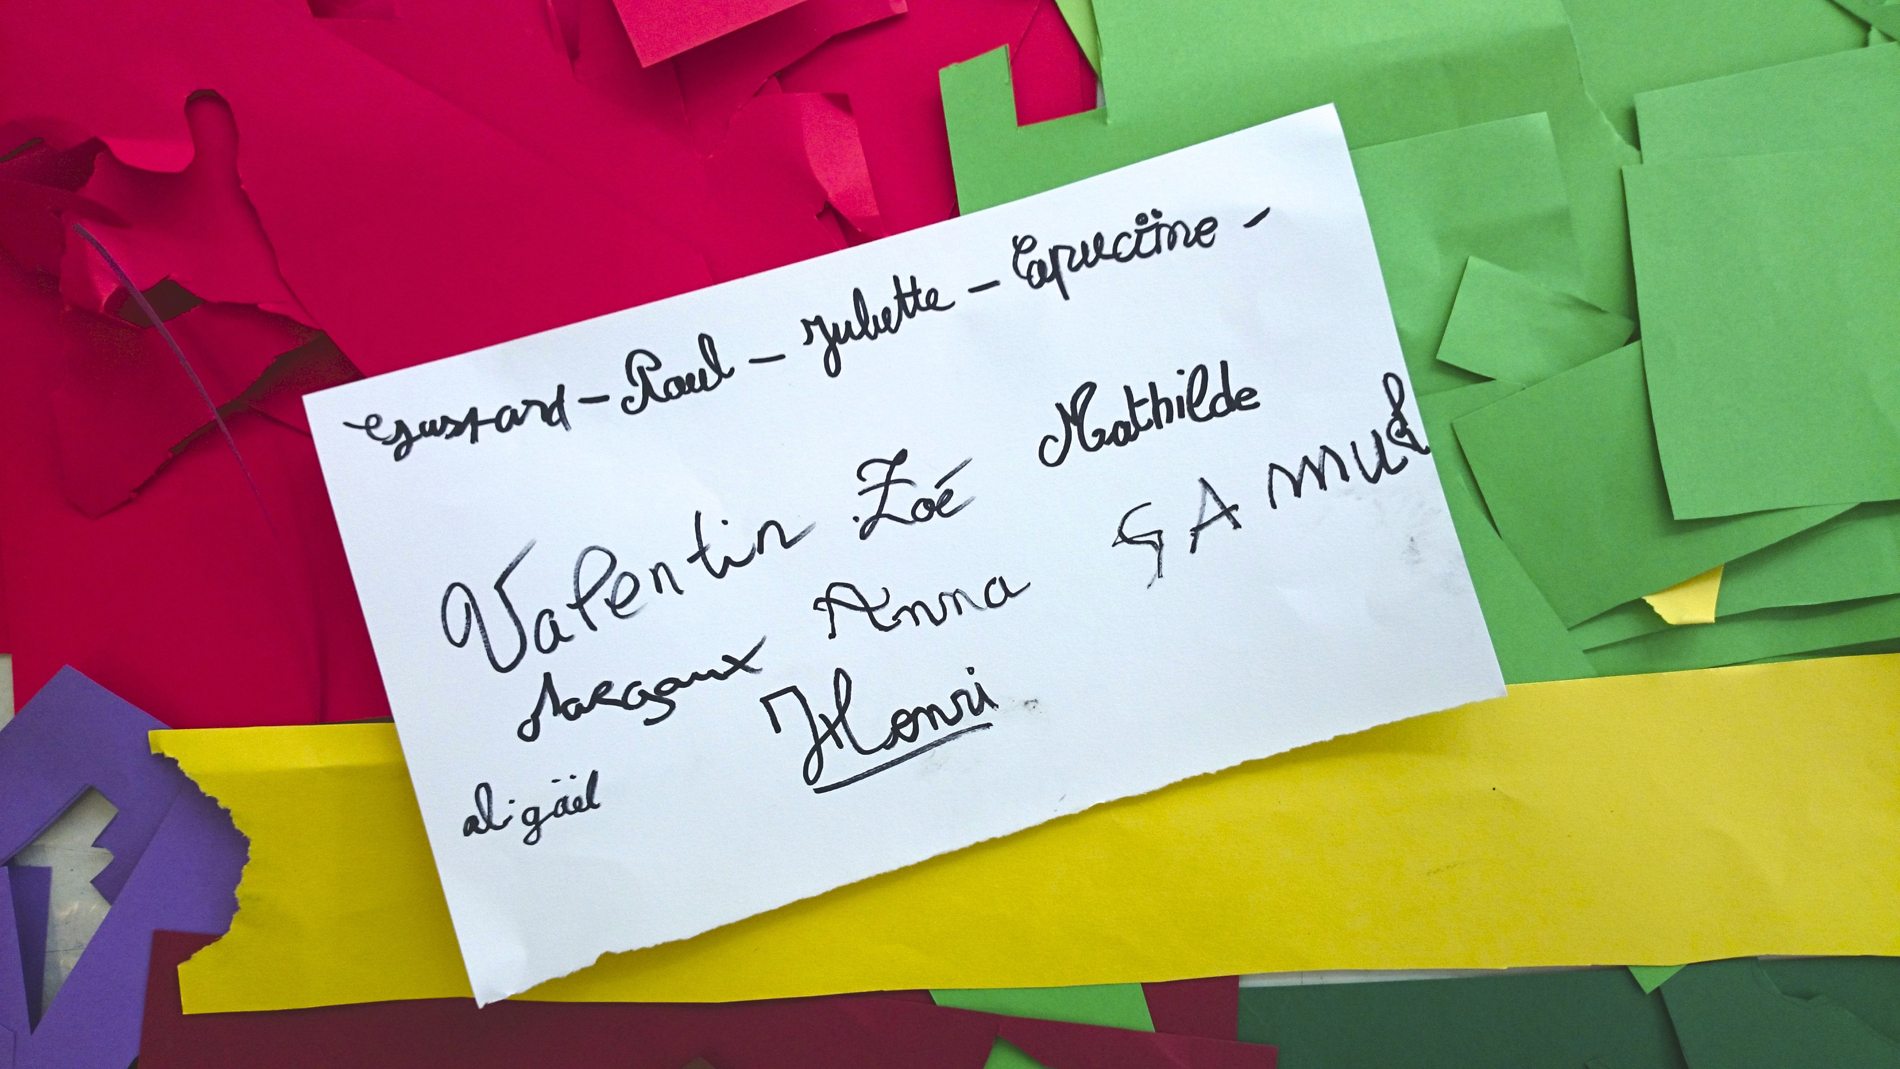 Gaspard - Raoul - Juliette - Capucine -
Mathilde
Valentin Zoé
SAmuel
Margaux Anna
Henri
aligäel